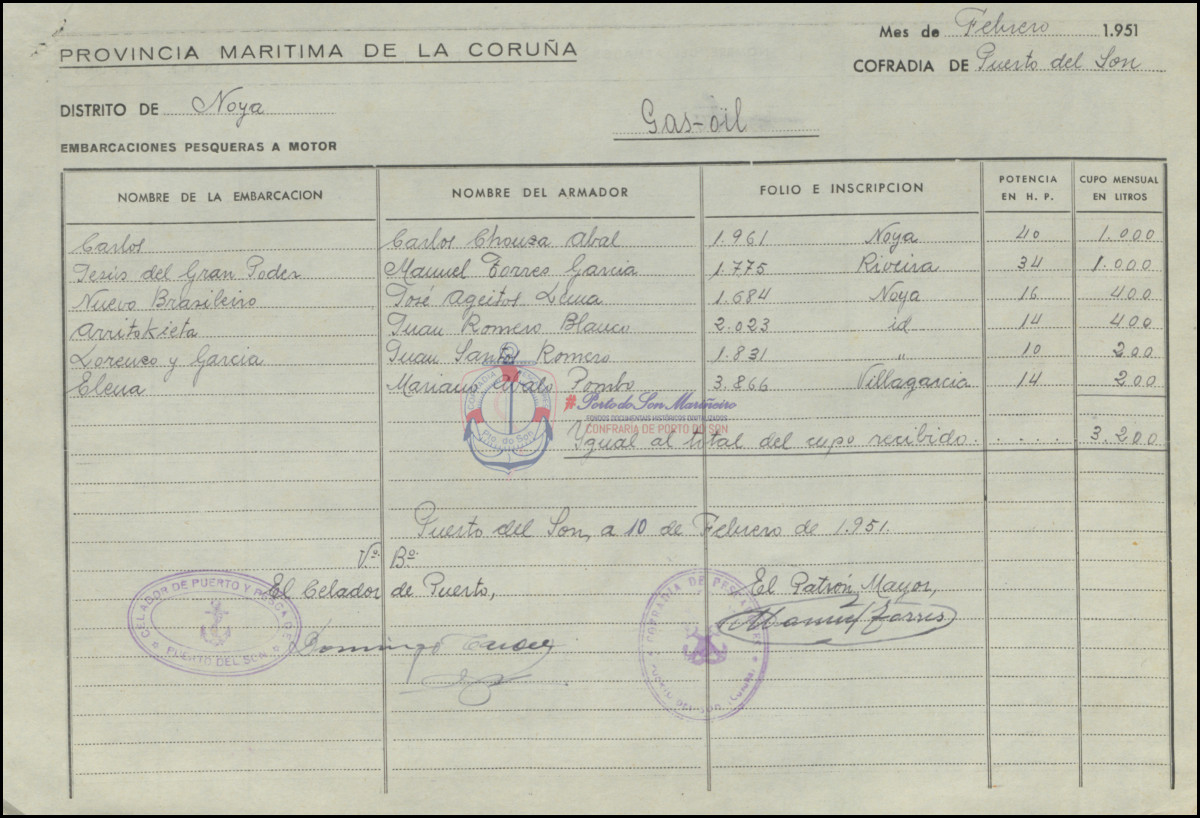 Mes de Febrero 1.951
PROVINCIA MARITIMA DE LA CORUÑA
COFRADIA DE Puerto del Son
DISTRITO DE Noya
Gas-oil
EMBARCACIONES PESQUERAS A MOTOR
NOMBRE DE LA EMBARCACION NOMBRE DEL ARMADOR FOLIO E INSCRIPCION POTENCIA EN H. P. CUPO MENSUAL EN LITROS
Carlos Carlos Chouza Abal 1.961 Noya 40 1.000
Jesús del Gran Poder Manuel Torres Garcia 1.775 Riveira 34 1.000
Nuevo Brasileiro José Ageitos Lema 1.684 Noya 16 400
Arritokieta Juan Romero Blanco 2.023 id 14 400
Lorenzo y Garcia Juan Santos Romero 1.831 " 10 200
Elena Mariano Pombo 3.866 Villagarcia 14 200
#Porto do Son Mariñeiro
FONDOS DOCUMENTAIS HISTÓRICOS DIXITALIZADOS
CONFRARÍA DE PORTO DO SON
Pto. do Son
Igual al total del cupo recibido. . . . . 3.200
Puerto del Son, a 10 de Febrero de 1.951.
Vº. Bº.
El Celador de Puerto, El Patrón Mayor,
CELADOR DE PUERTO Y PESCA DE
PUERTO DEL SON
COFRADIA DE PESCADORES
PUERTO DEL SON (Coruña)
Domingo
Manuel Torres